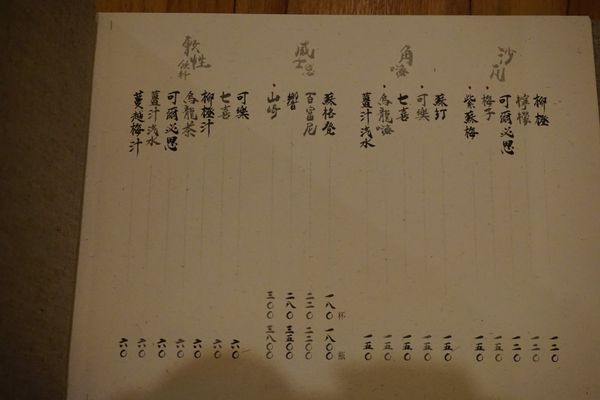 沙瓦
柳橙 一二〇
檸檬 一二〇
可爾必思 一二〇
梅子 一五〇
紫蘇梅 一五〇
角嗨
蘇打 一五〇
可樂 一五〇
七喜 一五〇
烏龍嗨 一五〇
薑汁淺水 一五〇
威士忌
杯 瓶
蘇格登 一八〇 一八〇〇
百富尼 二二〇 二二〇〇
響 二八〇 三五〇〇
山崎 三〇〇 三八〇〇
軟性飲料
可樂 六〇
七喜 六〇
柳橙汁 六〇
烏龍茶 六〇
可爾必思 六〇
薑汁淺水 六〇
蔓越梅汁 六〇